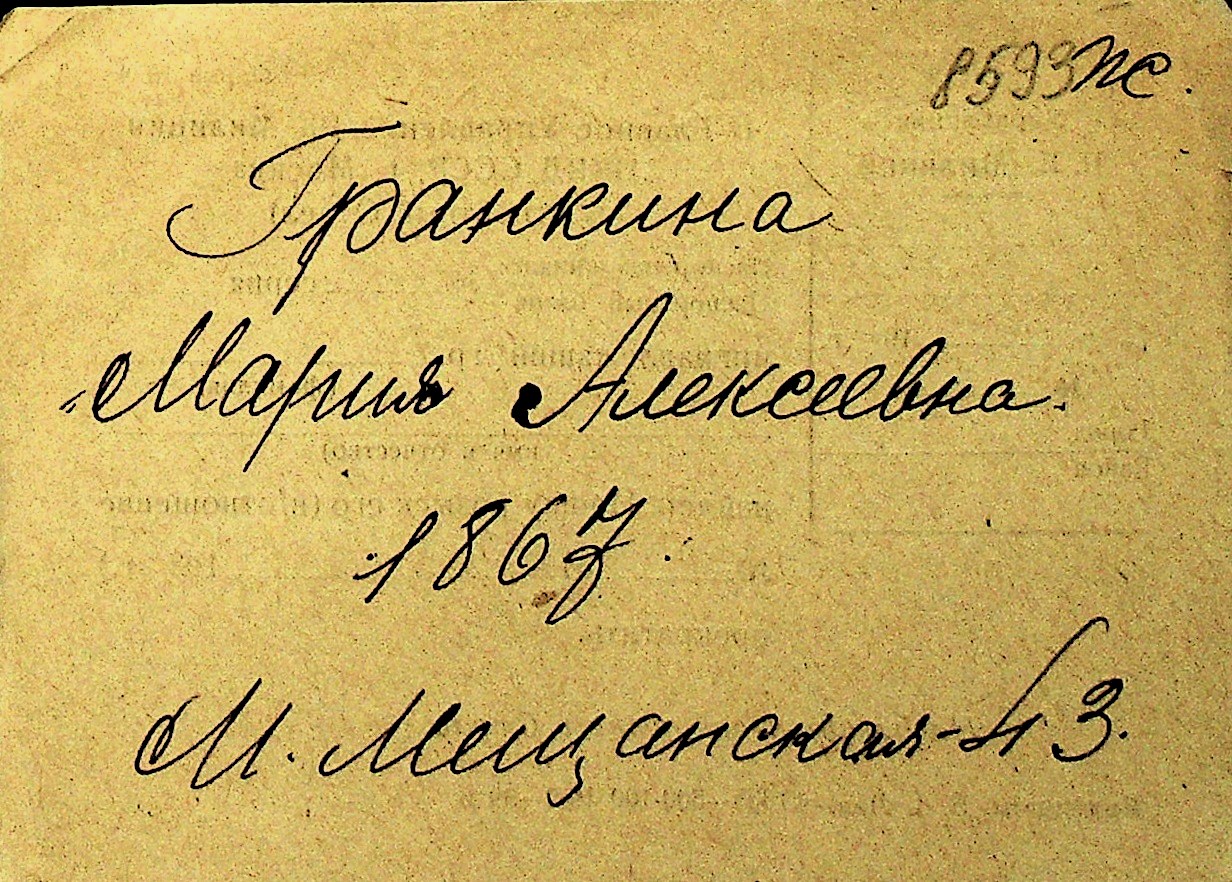 8593 пс.
Гранкина
Мария Алексеевна.
1867.
М. Мещанская - 43.